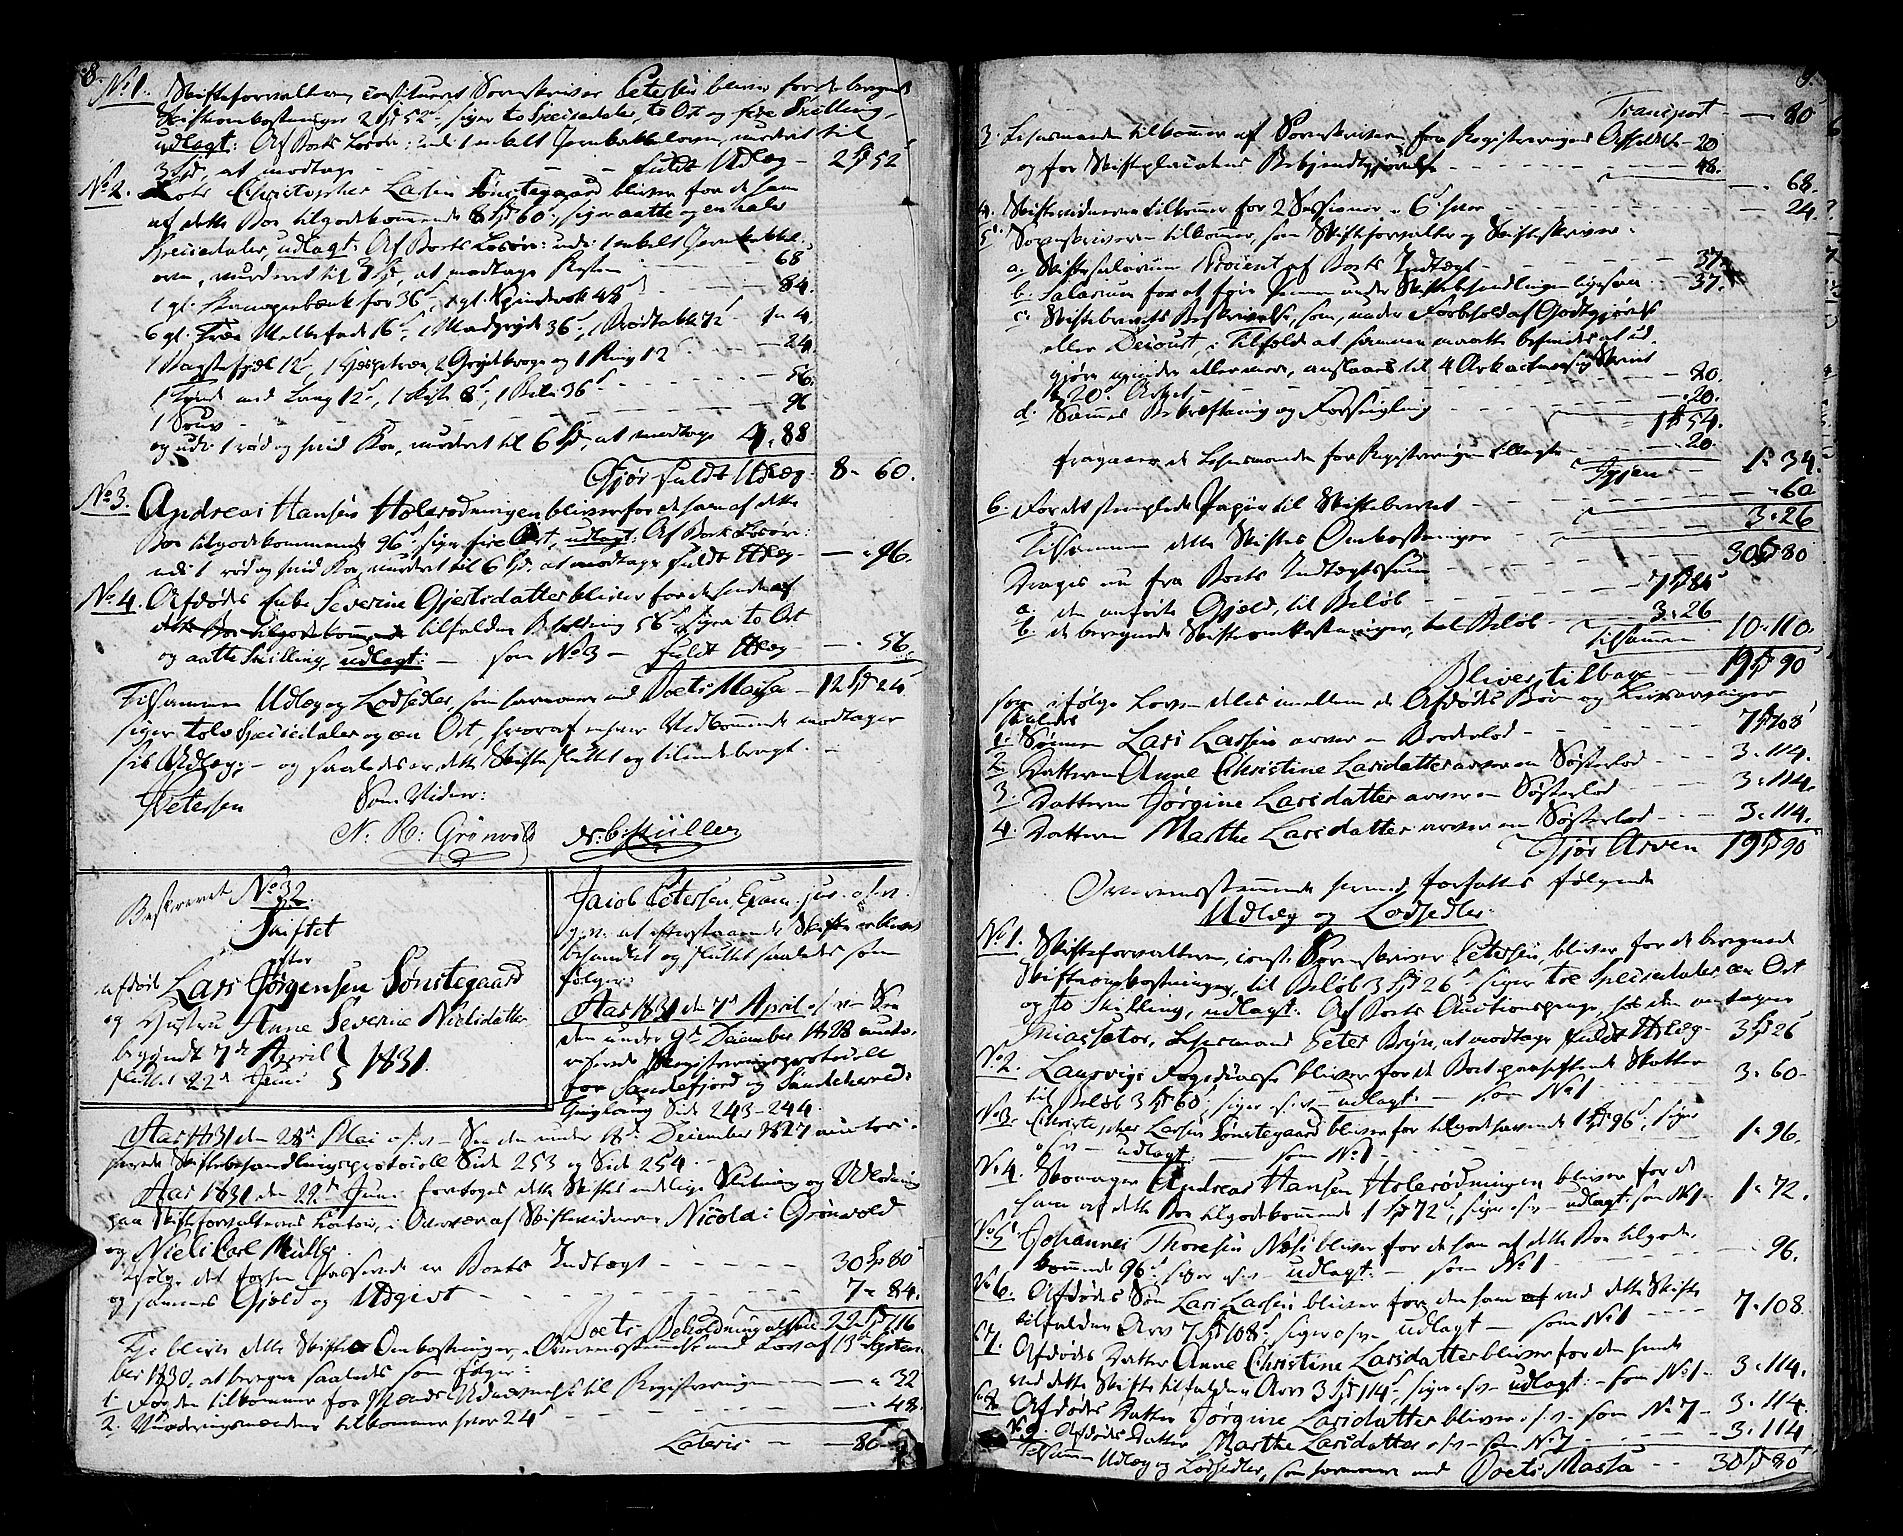 8.
No 1. Skifteforvalteren constitueret Sorenskriver Petersen bliver for de beregnede
Skifteomkostninger 2 Spd 52 s, siger to Speciedaler, to Ort og fire Skilling,
udlagt: Af Boets Løsøre: udi 1 enkelt Jernkakkelovn, vurderet til
3 Spd, at modtage fuldt Udlæg — 2 Spd 52
No 2. Lods Christopher Larsen Sønstegaard bliver for de ham
af dette Boe tilgodekommende 8 Spd 60 s, siger aatte og en halv
Speciedaler, udlagt: Af Boets Løsøre: udi 1 enkelt Jernkakkel-
ovn, vurderet til 3 Spd, at modtage Resten 68
1 gl. Kanapeebænk for 36 s, 1 gl. Spinderok 48 s 84.
6 gl. Træ Melkefade 16 s, 1 Madgryde 36 s, 1 Brødtakke 72 s 1 - 4.
1 Bagstefjæl 12 s, 1 Hespetræe, 2 Grydekroge og 1 Ring 12 s 24.
1 Tønde med Laag 12 s, 1 Kiste 8 s, 1 Bile 36 s 56.
1 Souv 96
og udi 1 rød og hvid Koe, vurderet til 6 Spd, at modtage 4. 88
Gjør fuldt Udlæg - 8 - 60.
No 3. Andreas Hansen Holerødningen bliver for de ham af dette
Boe tilgodekommende 96 s, siger fire Ort, udlagt: Af Boets Løsøre:
udi 1 rød og hvid Koe, vurderet til 6 Spd. at modtage fuldt Udlæg — " 96.
No 4. Afdødes Enke Severine Gjertsdatter bliver for de hende af
dette Boe tilgodekommende tilfaldne Beholdning 56 s, siger to Ort
og aatte Skilling, udlagt: — som No 3 — fuldt Udlæg — - 56.
Tilsammen Udlæg og Lodsedler, som harmonere med Boets Massa — 12 Spd 24
siger tolv Speciedaler og een Ort, hvoraf enhver Vedkommende modtager
sit Udlæg; — og saaledes er dette Skifte sluttet og tilendebragt. —
Petersen Som Vidner:
N. R: Grönvold N. C. Müller
Beskrevet No 32.
Skiftet
efter
afdøde Lars Jørgensen Sønstegaard
og Hustru Anne Severine Nielsdatter
begyndt 7de April
sluttet 22de Juni } 1831.
Jacob Petersen, Exam. jur. o.s.v.
g.v. at efterstaaende Skifte er blevet
behandlet og sluttet saaledes som
følger:
Aar 1831 den 7de April o.s.v. — See
den under 9de December 1828 auto-
riserede Registreringsprotocoll
for Sandefjord og Sandeherreds
Thinglaug Side 243–244.
Aar 1831 den 28de Mai o.s.v. — See den under 18de December 1827 autori-
serede Skiftebehandlingsprotocoll Side 253 og Side 254.
Aar 1831 den 22de Juni foretoges dette Skiftes endelige Slutning og Udlodning
paa Skifteforvalterens Contoir, i Overvær af Skiftevidnerne Nicolai Grönvold
og Niels Carl Müller.
Ifølge det forhen Passerede er Boets Indtægt 30 Spd 80
og sammes Gjeld og Udgivt 7 - 84.
Boets Beholdning altsaa 22 Spd 116
Her bliver dette Skiftes Omkostninger, i Overensstemmelse med Lov af 13de Septem-
ber 1830, at beregne saaledes som følger:
1. Fogden tilkommer for Mænds Udnævnelse til Registreringen — " 32
2. Vurderingsmændene tilkommer hver 24 s — 48.
Lateris — 80
9.
Transport — 80
3. Lensmanden tilkommer af Sorenskriveren for Registreringens Afholdelse — 20
og for Skifteplacatens Bekjendtgjørelse 48.
— 68.
4. Skiftevidnerne tilkommer for 2 Sessioner a 6 s hver 24.
5. Sorenskriveren tilkommer, som Skifteforvalter og Skifteskriver:
a. Skiftesalarium 1 Procent af Boets Indtægt 37.
b. Salarium for at føre Pennen under Skiftebehandlingen ligesaa 37.
c. Skiftebrevets Beskrivelse, som, under Forbehold af Godtgjørelse
eller Decourt, i Tilfælde at sammen maatte befindes at ud-
gjøre mindre eller mere, anslaaes til 4 Ark
a 20 s Arket 80.
d. Sammes Bekræftning og Forsegling 20.
1 Spd 54.
fragaaer de Lensmanden for Registreringen tillagte 20
Igjen 1 - 34.
6. For det stemplede Papir til Skiftebrevet 60
Tilsammen dette Skiftes Omkostninger 3 - 26
Drages nu fra Boets Indtægtssum 30 Spd 80
a. den anførte Gjeld, til Beløb 7 Spd 84
b. de beregnede Skifteomkostninger, til Beløb 3 - 26
Tilsammen 10 - 110.
Bliver tilbage 19 Spd 90
som ifølge Loven deles imellem de Afdødes Børn og Livsarvinger
saaledes
1. Sønnen Lars Larsen arver en Broderlod 7 Spd 108
2. Datteren Anne Christine Larsdatter arver en Søsterlod 3 - 114.
3. Datteren Jørgine Larsdatter arver en Søsterlod 3 - 114.
4. Datteren Marthe Larsdatter arver en Søsterlod 3 - 114.
Gjør Arven 19 Spd 90
Overensstemmende hermed forfattes følgende
Udlæg og Lodsedler.
No 1. Skifteforvalteren, const. Sorenskriver Petersen, bliver for de beregnede
Skifteomkostninger, til Beløb 3 Spd 26 s siger tre Speciedaler een Ort
og to Skilling, udlagt: Af Boets Auctionspenge, hos den antagne
Incassator, Lensmand Peter Bryn, at modtage fuldt Udlæg — 3 Spd 26
No 2. Laurvigs Fogedcasse bliver for de Boet paahæftende Skatter
til Beløb 3 Spd 60 s, siger o.s.v. — udlagt: — som No 1 3 - 60
No 3. Christopher Larsen Sønstegaard bliver for tilgodehavende 1 Spd 96 s, siger
o.s.v. — udlagt: — som No 1 1 - 96.
No 4. Skomager Andreas Hansen Holerødningen bliver for de
ham af dette Boe tilgodekommende 1 Spd 72 s, siger o.s.v. — udlagt: som No 1 — 1 - 72.
No 5. Johannes Thoresen Næs bliver for de ham af dette Boe tilgode-
kommende 96 s, siger o.s.v. — udlagt: — som No 1 — 96.
No 6. Afdødes Søn Lars Larsen bliver for den ham ved dette Skifte
tilfaldne Arv 7 Spd 108 s, siger o.s.v. — udlagt — som No 1 7 - 108
No 7. Afdødes Datter Anne Christine Larsdatter bliver for den hende
ved dette Skifte tilfaldne Arv 3 Spd 114 s, siger o.s.v. — udlagt: — som No 1 — 3 - 114.
No 8. Afdødes Datter Jørgine Larsdatter bliver o.s.v. som No 7 — 3 - 114.
No 9. Afdødes Datter Marthe Larsdatter o.s.v. — som No 7 3 - 114
Tilsammen Udlæg og Lodsedler, som harmonere med Boets Massa 30 Spd 80